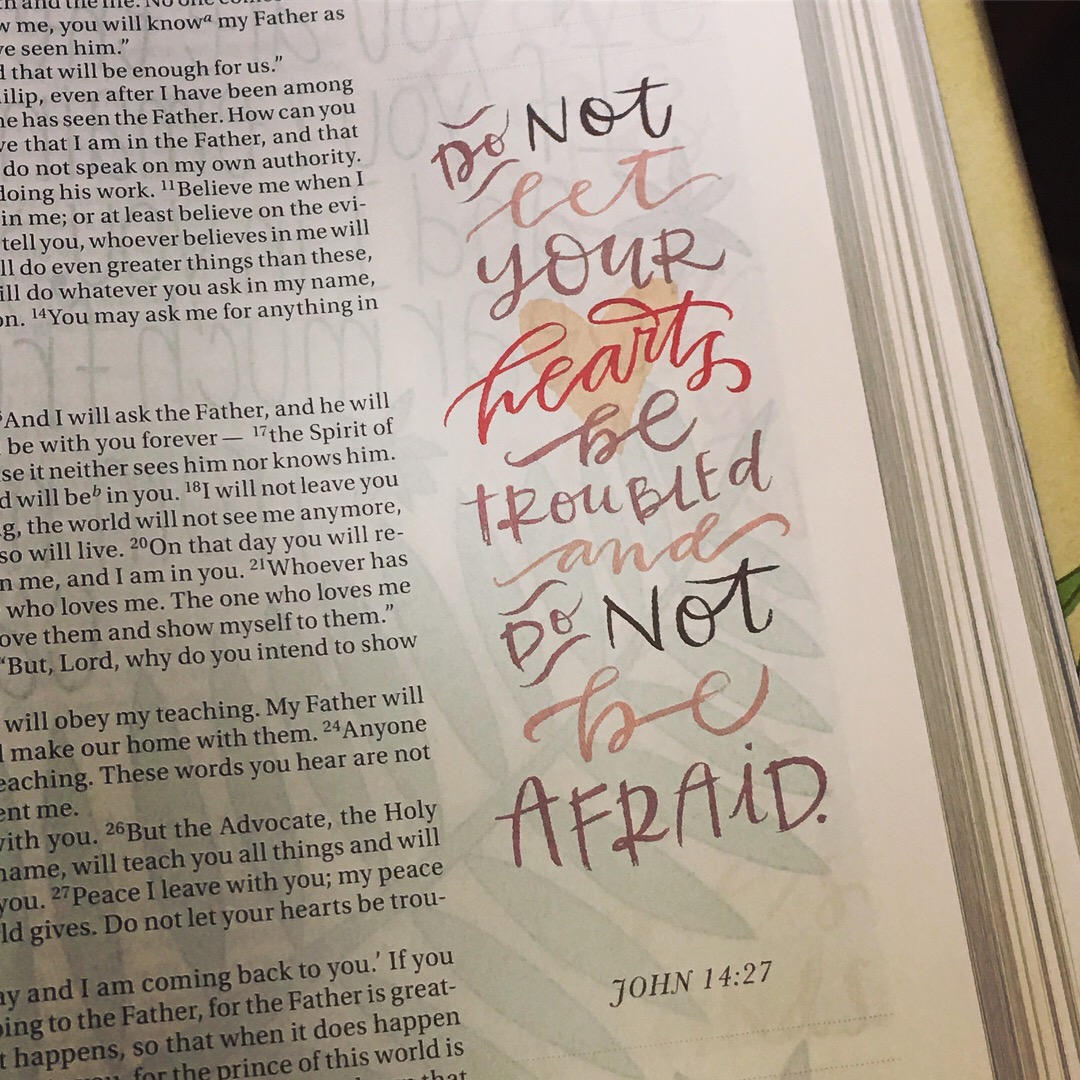 and the me. No one
me, you will knowᵃ my Father as
seen him.”
that will be enough for us.”
even after I have been among
has seen the Father. How can you
that I am in the Father, and that
do not speak on my own authority.
doing his work. ¹¹Believe me when I
in me; or at least believe on the evi-
tell you, whoever believes in me will
do even greater things than these,
will do whatever you ask in my name,
¹⁴You may ask me for anything in
And I will ask the Father, and he will
be with you forever — ¹⁷the Spirit of
it neither sees him nor knows him.
will beᵇ in you. ¹⁸I will not leave you
the world will not see me anymore,
so will live. ²⁰On that day you will re-
me, and I am in you. ²¹Whoever has
who loves me. The one who loves me
love them and show myself to them.”
“But, Lord, why do you intend to show
will obey my teaching. My Father will
make our home with them. ²⁴Anyone
teaching. These words you hear are not
me.
with you. ²⁶But the Advocate, the Holy
name, will teach you all things and will
you. ²⁷Peace I leave with you; my peace
gives. Do not let your hearts be trou-
and I am coming back to you.’ If you
going to the Father, for the Father is great-
happens, so that when it does happen
for the prince of this world is
that
Do Not
let
your
hearts
be
troubled
and
Do Not
be
AFRAiD.
JOHN 14:27